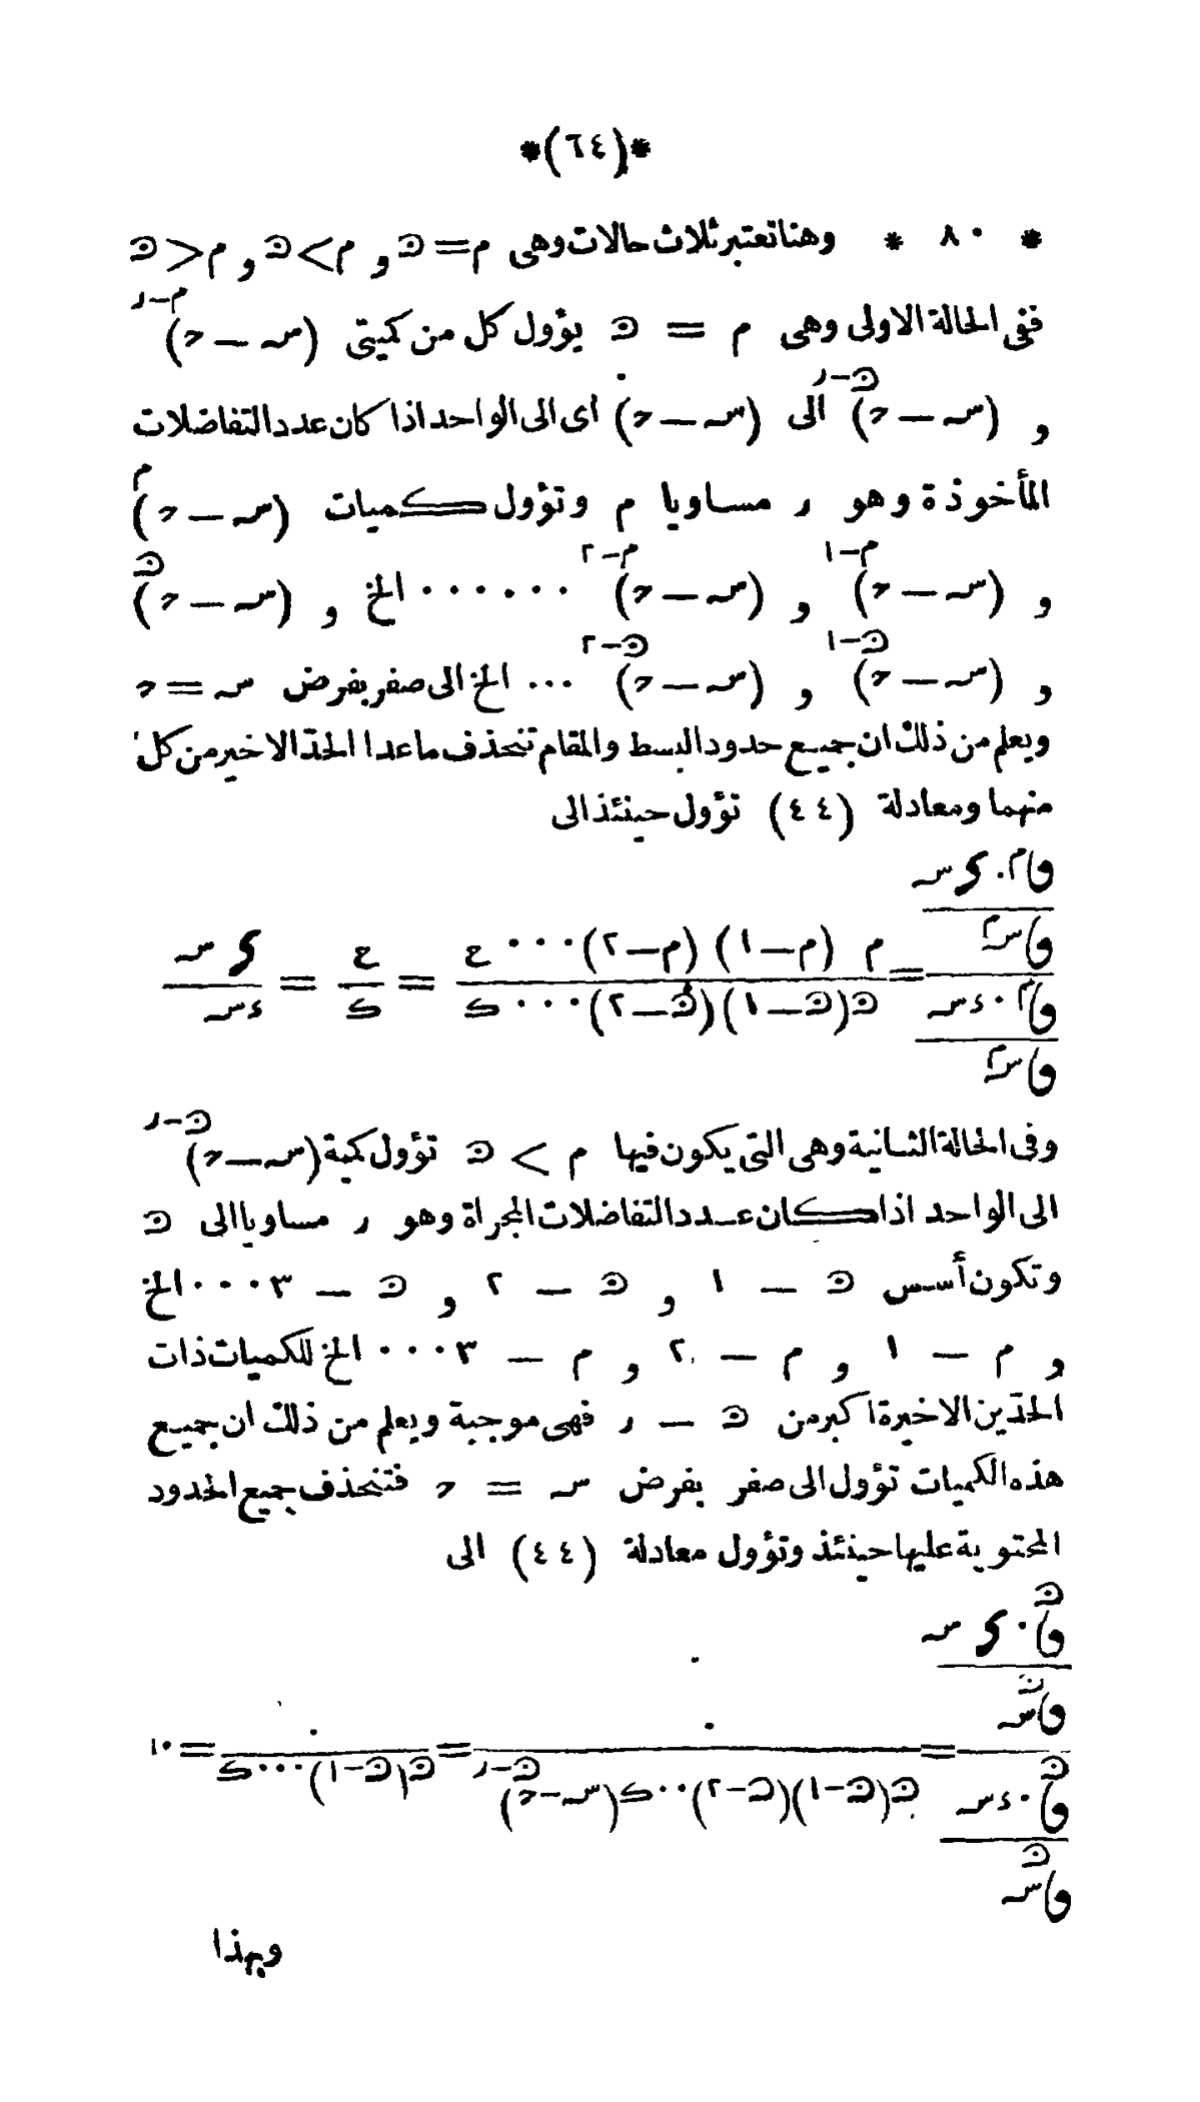 *(٦٤)*
* ٨٠ * وهنا تعتبر ثلاث حالات وهى م=ن و م>ن و م<ن
ففى الحالة الاولى وهى م = ن يؤول كل من كميتى (س – ح)^(م–ر)
و (س – ح)^(ن–ر) الى (س – ح)^٠ اى الى الواحد اذا كان عدد التفاضلات
المأخوذة وهو ر مساويا م وتؤول كميات (س – ح)^م
و (س – ح)^(م–١) و (س – ح)^(م–٢) ...... الخ و (س – ح)^ن
و (س – ح)^(ن–١) و (س – ح)^(ن–٢) ... الخ الى صفر بفرض س = ح
ويعلم من ذلك ان جميع حدود البسط والمقام تنحذف ماعدا الحدّ الاخير من كل
منهما ومعادلة (٤٤) تؤول حينئذ الى
فا^م . ى س
فا س^م = م (م–١) (م–٢)...ع = ع = ى س
فا^م . ء س = ن(ن–١)(ن–٢)...ك = ك = ء س
فا س^م
وفى الحالة الثانية وهى التى يكون فيها م > ن تؤول كمية (س–ح)^(ن–ر)
الى الواحد اذا كان عدد التفاضلات المجراة وهو ر مساويا الى ن
وتكون أسس ن – ١ و ن – ٢ و ن – ٣... الخ
و م – ١ و م – ٢ و م – ٣... الخ للكميات ذات
الحدّين الاخيرة اكبر من ن – ر فهى موجبة ويعلم من ذلك ان جميع
هذه الكميات تؤول الى صفر بفرض س = ح فتنحذف جميع الحدود
المحتوية عليها حينئذ وتؤول معادلة (٤٤) الى
فا^ن . ى س
فا س^ن = ٠ = ٠ = ٠
فا^ن . ء س = ن(ن–١)(ن–٢)..ك(س–ح)^(ن–ر) = ن(ن–١)...ك
فا س^ن
وبهذا